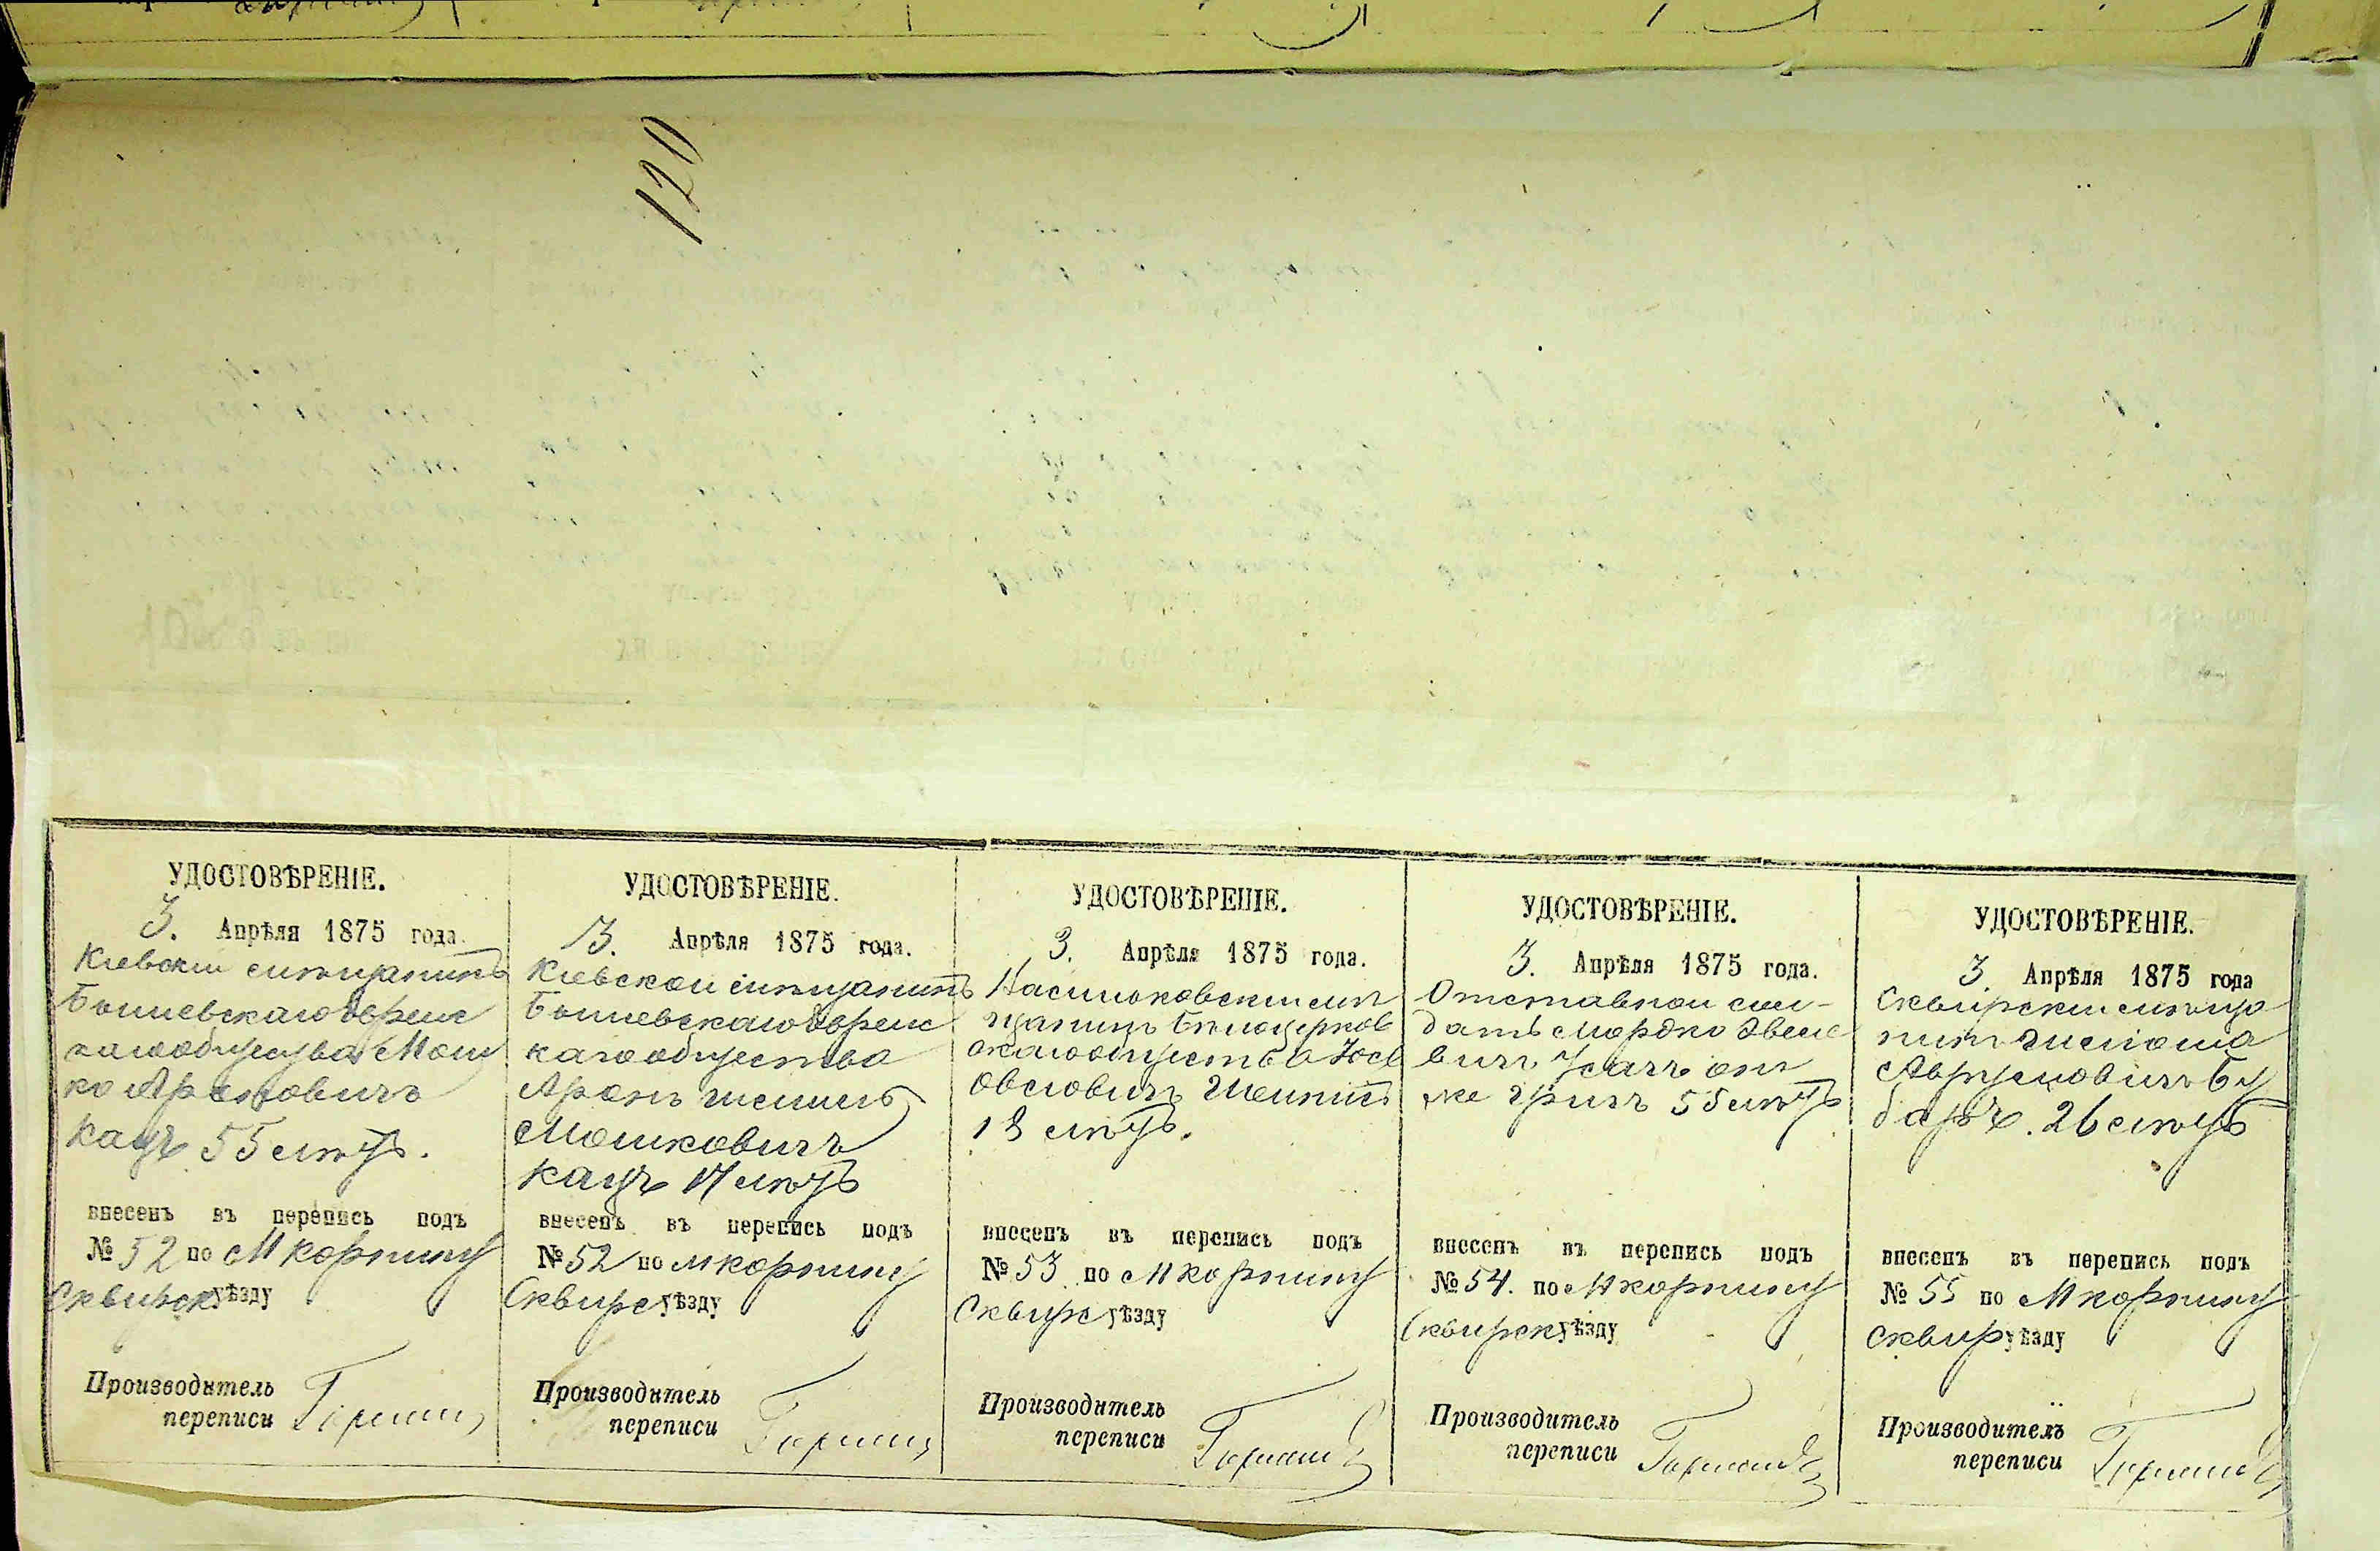 120
УДОСТОВѢРЕНІЕ.
3. Апрѣля 1875 года.
Кіевскій мѣщанинъ
Бышевскаго еврейс
каго общества Мош
ко Ароновичъ
Кацъ 55 лѣтъ.
внесенъ въ перепись подъ
№ 52 по М Корнину
Сквирск уѣзду
Производитель
переписи
УДОСТОВѢРЕНІЕ.
3. Апрѣля 1875 года.
Кіевской мѣщанинъ
Бышевскаго еврейс
каго общества
Аронъ
Мошковичъ
Кацъ 17 лѣтъ
внесенъ въ перепись подъ
№ 52 по М Корнину
Сквирс уѣзду
Производитель
переписи
УДОСТОВѢРЕНІЕ.
3. Апрѣля 1875 года.
мѣ
щанинъ Бѣлоцерков
скаго общества Іос
Овсіовичъ
18 лѣтъ.
внесенъ въ перепись подъ
№ 53 по М Корнину
Сквирс уѣзду
Производитель
переписи
УДОСТОВѢРЕНІЕ.
3. Апрѣля 1875 года.
Отставной сол-
датъ Мордко
вичъ Усачъ онъ
же 55 лѣтъ
внесенъ въ перепись подъ
№ 54. по М Корнину
Сквирск уѣзду
Производитель
переписи
УДОСТОВѢРЕНІЕ.
3. Апрѣля 1875 года
Сквирскій мѣща
нинъ
Аврумовичъ Бу
26 лѣтъ
внесенъ въ перепись подъ
№ 55 по М Корнину
Сквир уѣзду
Производитель
переписи